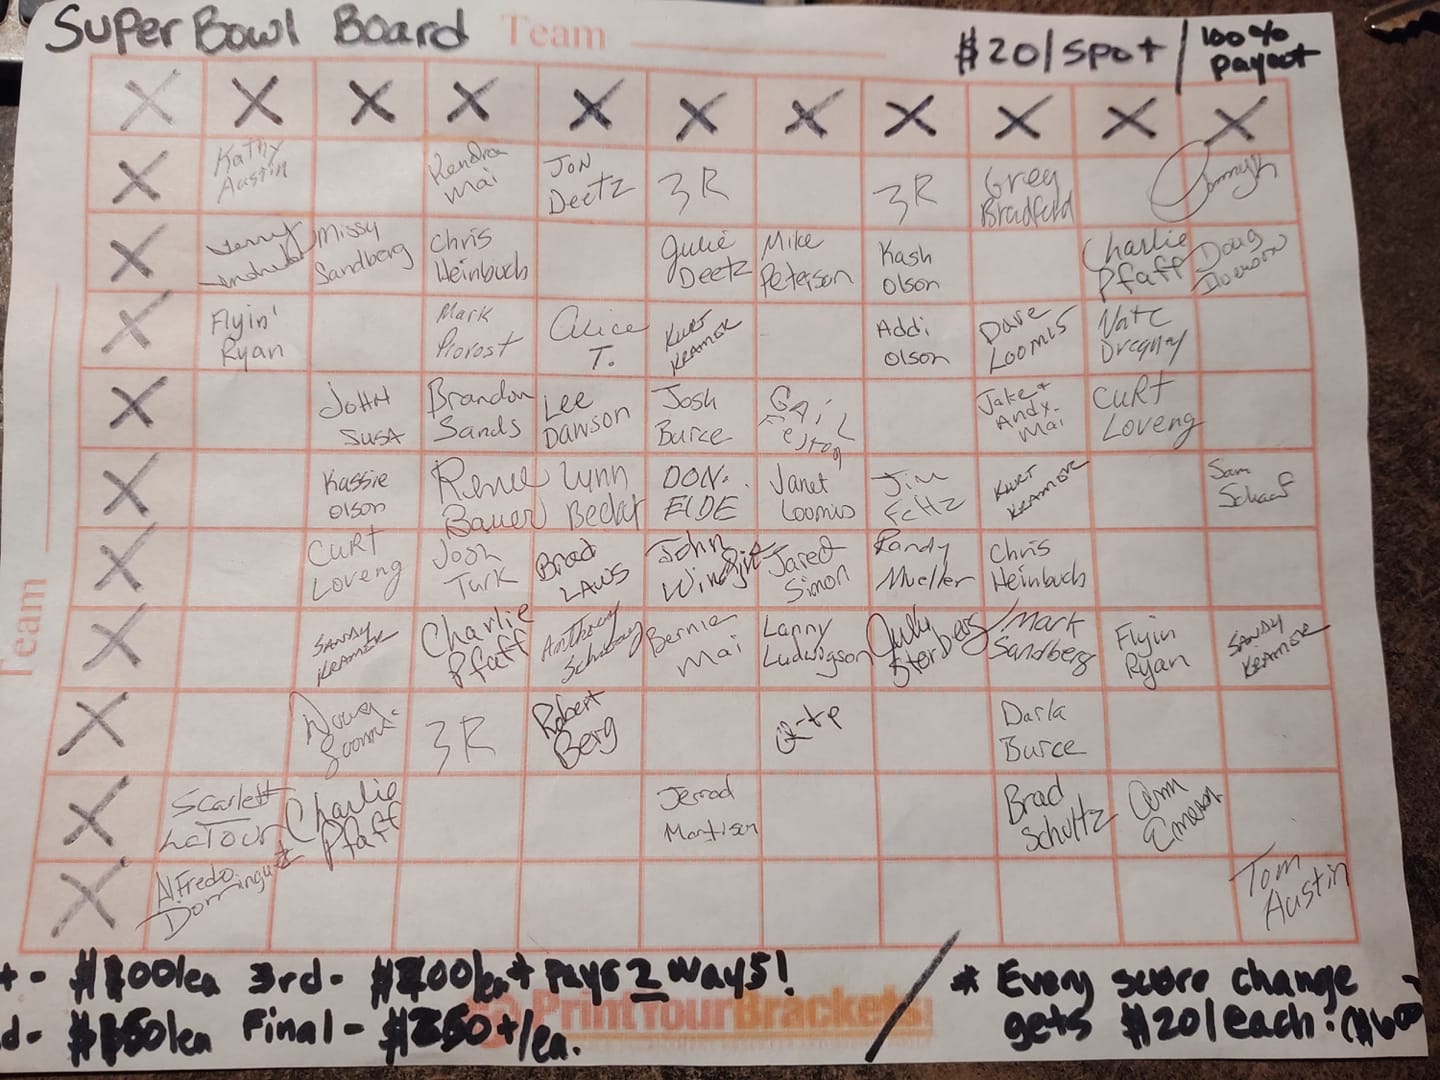 Super Bowl Board Team $20/spot / 100% payout
X X X X X X X X X X X
X Kathy Austin Kendra Mai Jon Deetz 3R 3R Greg Bradford
X Jerry Missy Sandberg Chris Heinbuch Julie Deetz Mike Peterson Kash Olson Charlie Pfaff Doug
X Flyin' Ryan Mark Provost Alice T. Kurt Kramer Addi Olson Dave Loomis Nate Dregney
X John Susa Brandon Sands Lee Dawson Josh Burce Gail Jake + Andy Mai Curt Loveng
X Kassie Olson Renee Bauer Lynn Don. Eide Janet Loomis Jim Feltz Kurt Kramer Sam Schaaf
X Curt Loveng Josh Turk Brad Laws John Jared Simon Randy Mueller Chris Heinbuch
X Sandy Kramer Charlie Pfaff Anthony Bernie Mai Larry Ludwigson Mark Sandberg Flyin Ryan Sandy Kramer
X Doug 3R Robert Berg Q-tip Darla Burce
X Scarlett LaTour Charlie Pfaff Jerrod Brad Schultz Ann
X Alfredo Dominguez Tom Austin
Team
$100/ea 3rd - $200/ea + Pays 2 Ways! / * Every score change
$150/ea Final - $250+/ea. gets $20/each!
PrintYourBrackets